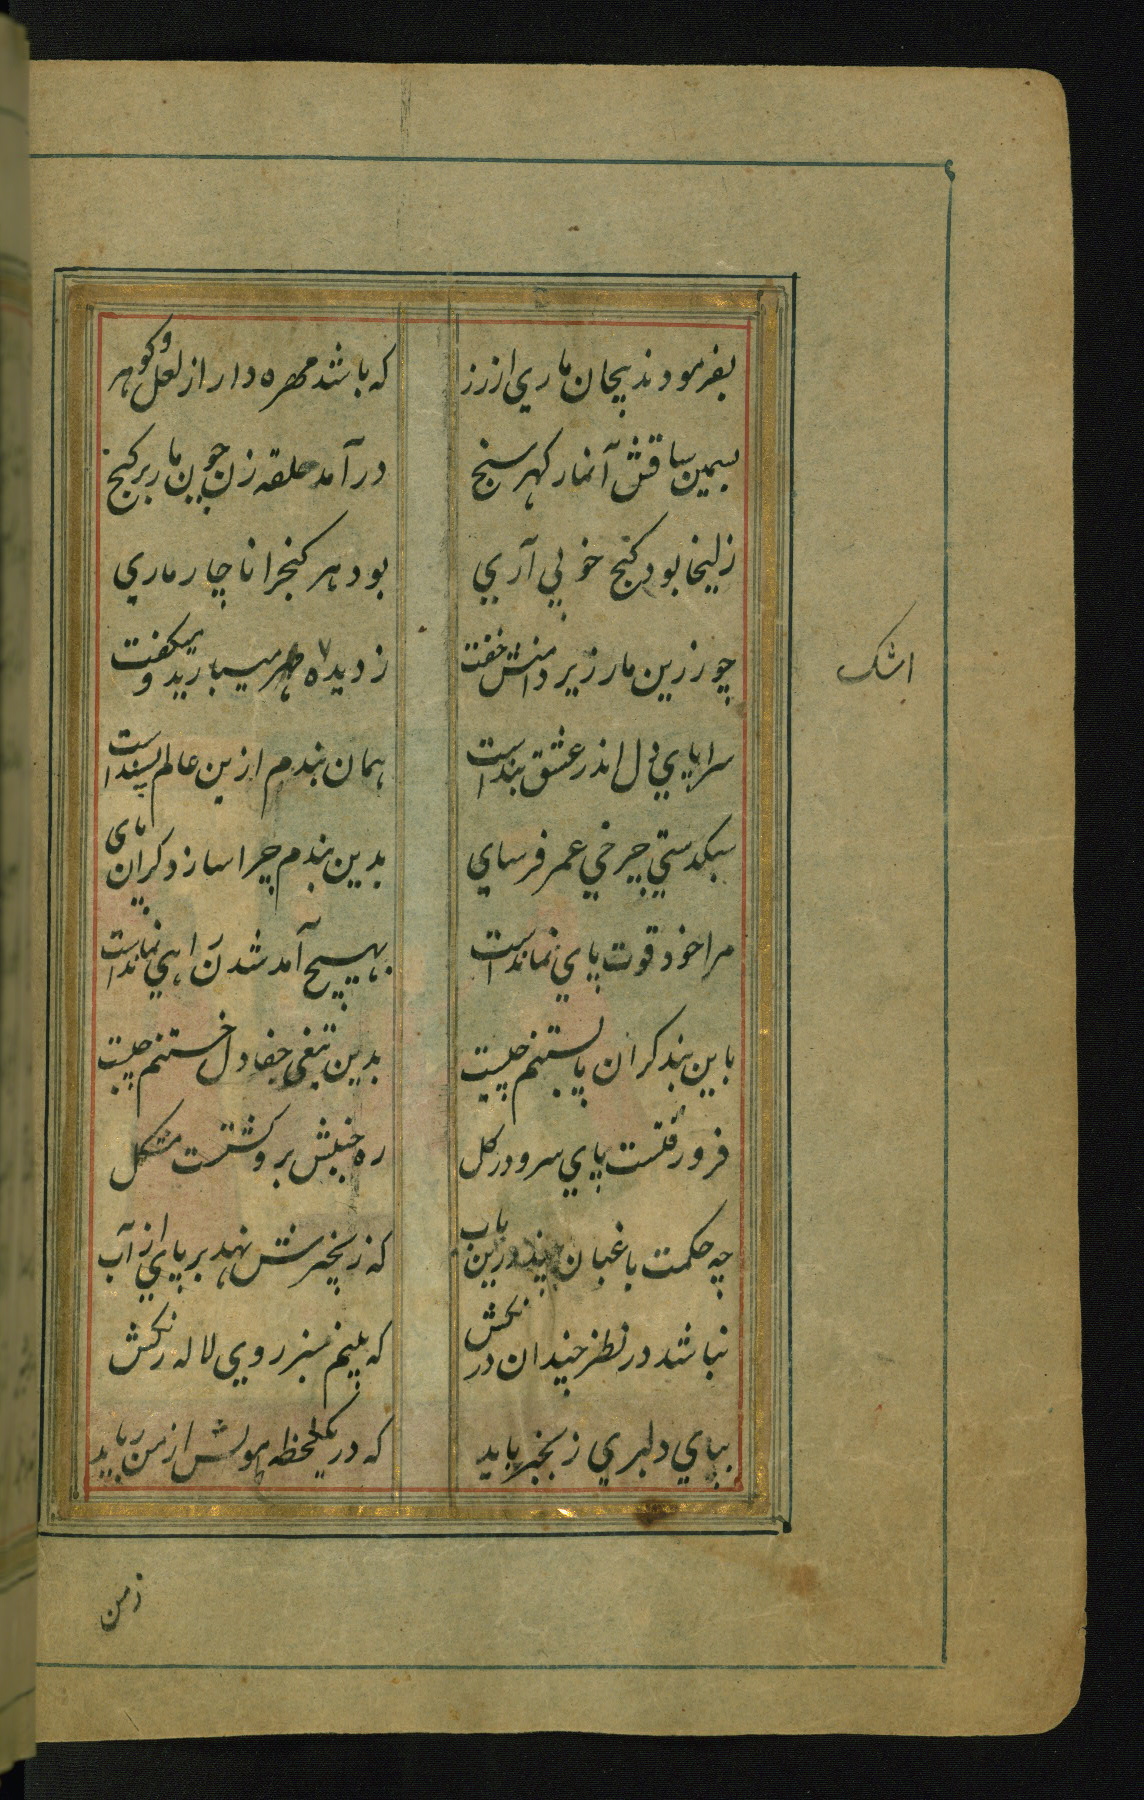 بفرمودند پیچان ماری از زر که باشد مهره دار از لعل و گوهر
بسیمین ساقش آنمار گهر سنج در آمد حلقه زن چون مار بر گنج
زلیخا بود گنج خوبی آری بود هر گنج را ناچار ماری
چو زرین مار زیر دامنش خفت ز دیده مهر میبارید و میگفت
اشک
سرا پای دل اندر عشق بنداست همان بندم ازین عالم پسنداست
سبکدستی چرخی عمر فرسای بدین بندم چرا سازد گران پای
مرا خود قوت پای نمانداست بهیچ آمد شدن راهی نمانداست
باین بند گران پا بستنم چیست بدین تیغی جفا دل خستنم چیست
فرو رفتست پای سرو در گل ره جنبش برو گشتست مشکل
چه حکمت باغبان بیند درین باب که زنجیرش نهد بر پای از آب
نباشد در نظر چندان درنگش که بینم سیر روی لاله رنگش
بپای دلبری زنجیر باید که در یکلحظه هوش از من رباید
زمن